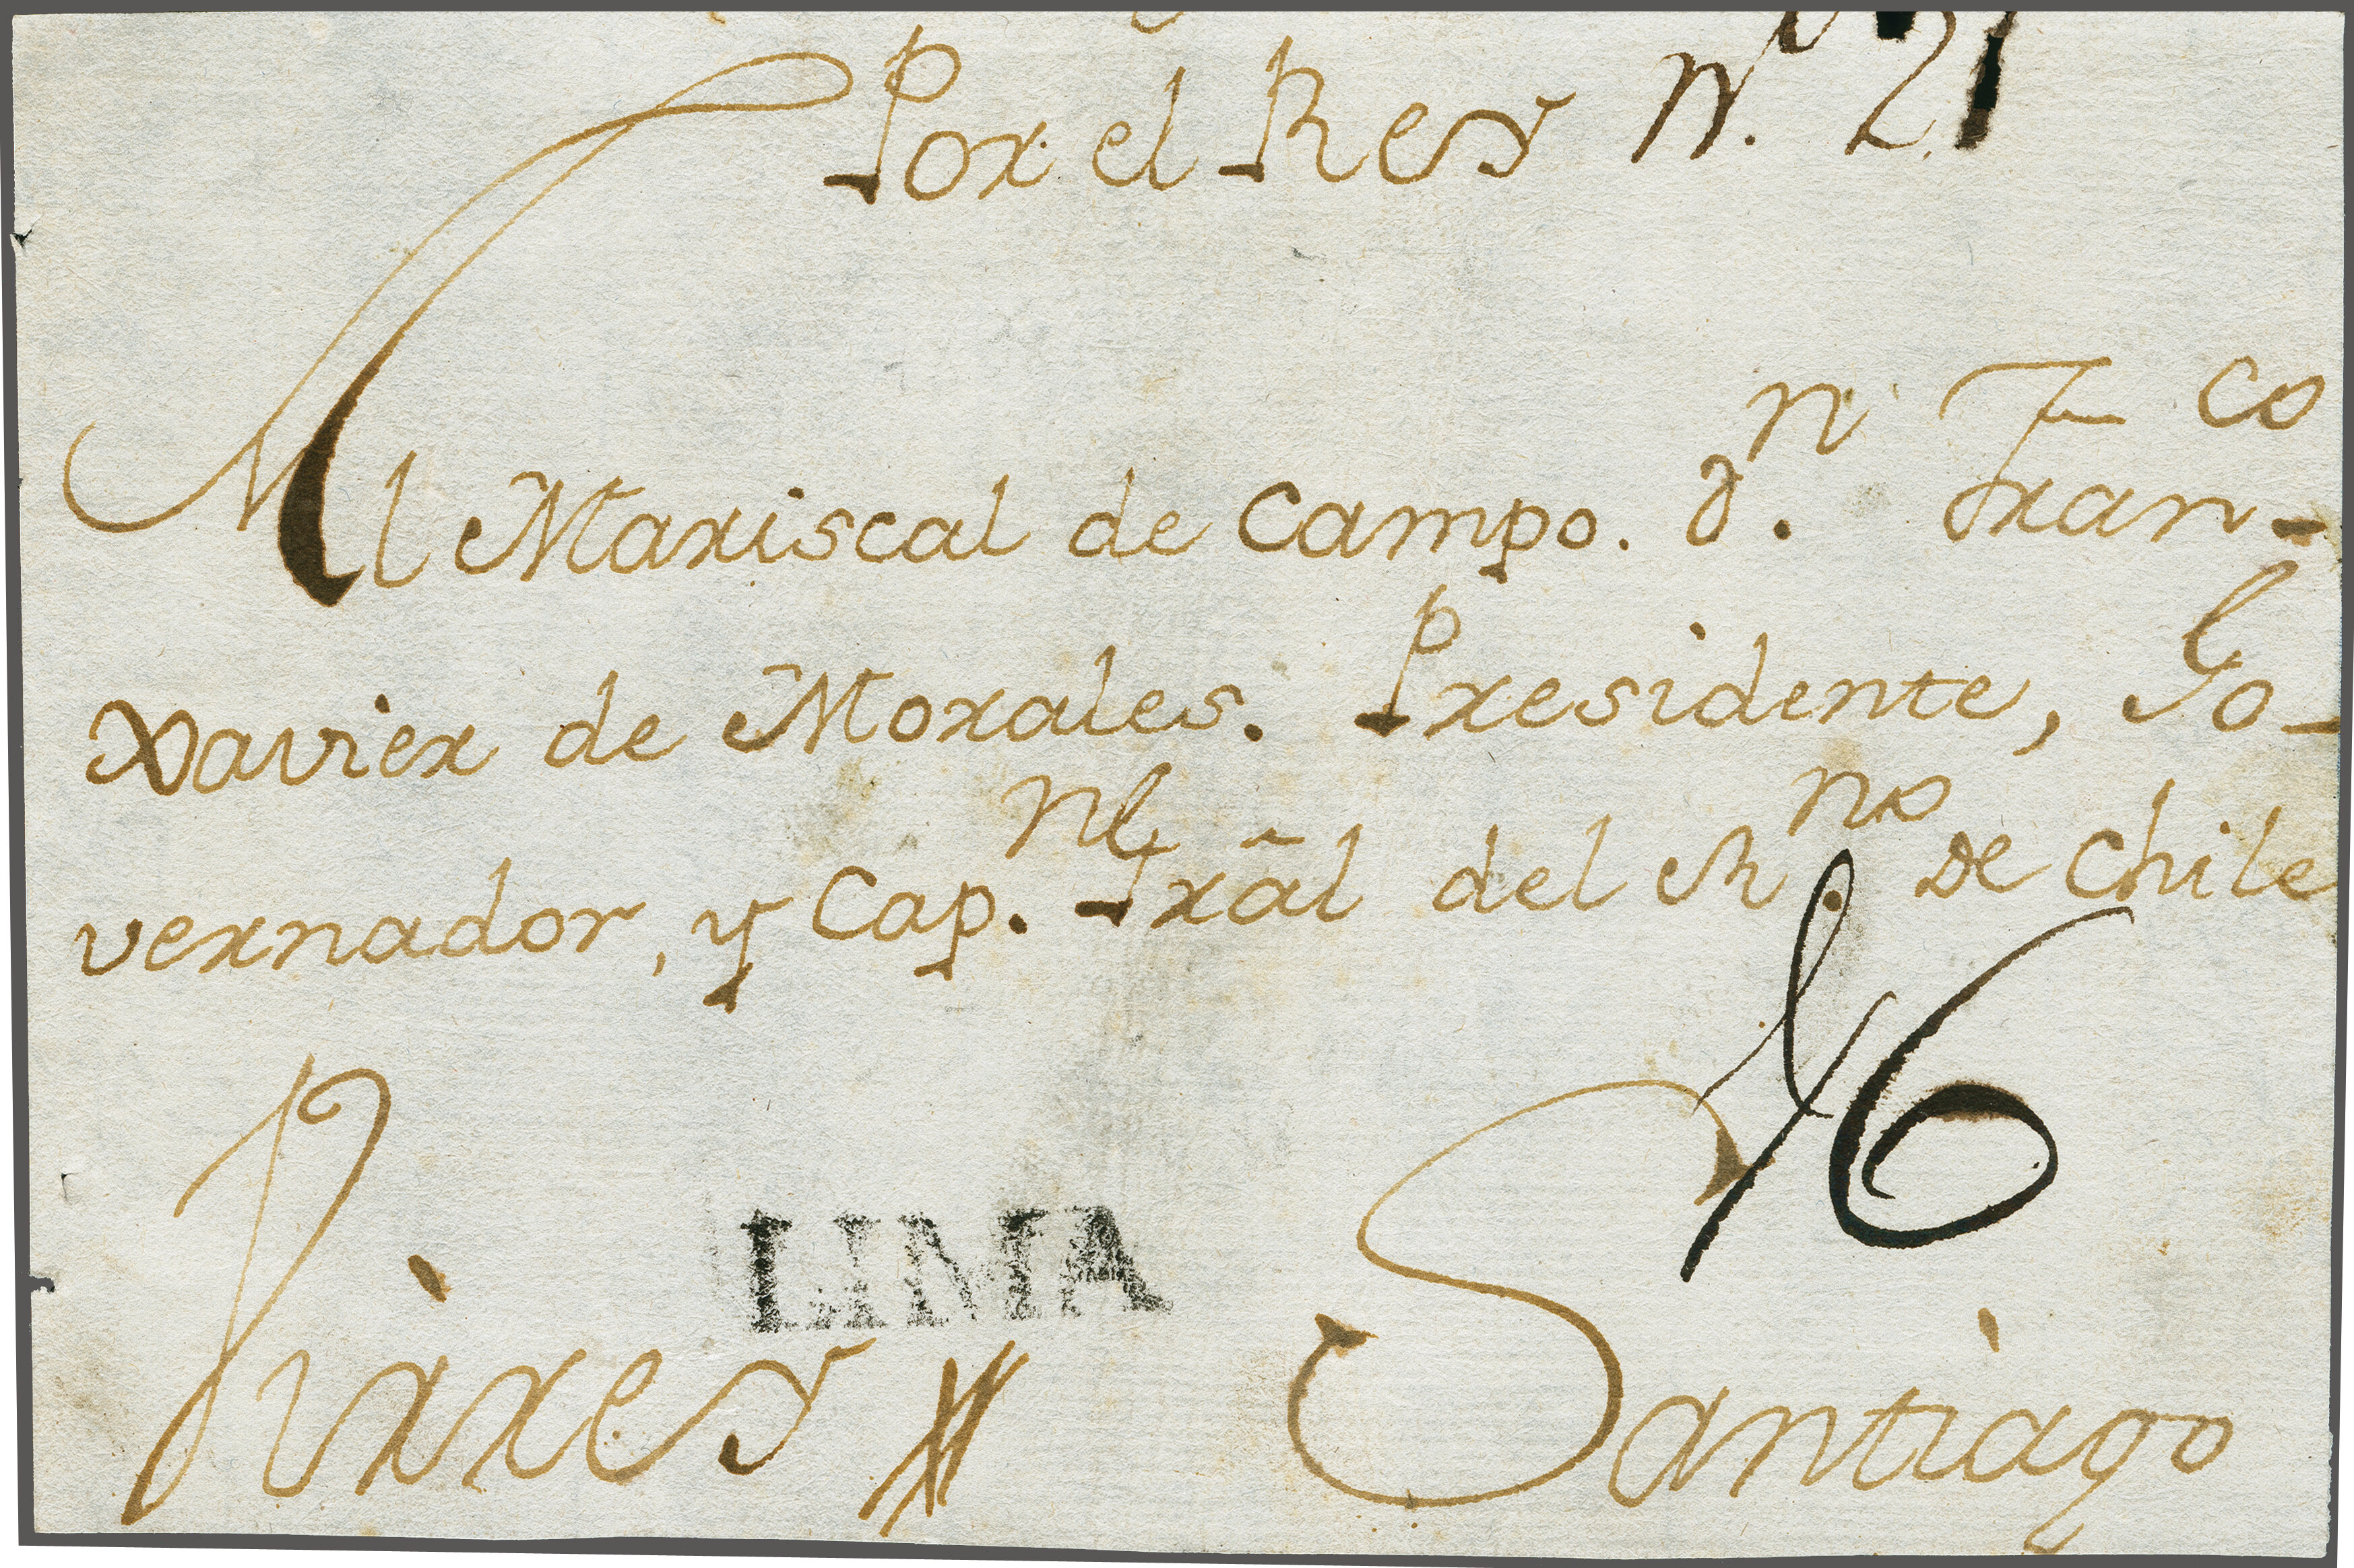 Por el Rey Nº. 21
Al Mariscal de Campo. Dn. Franco
Xavier de Morales. Presidente, Go-
vernador, y Capn. Gral del Rno. de Chile
16
LIMA
Virrey Santiago